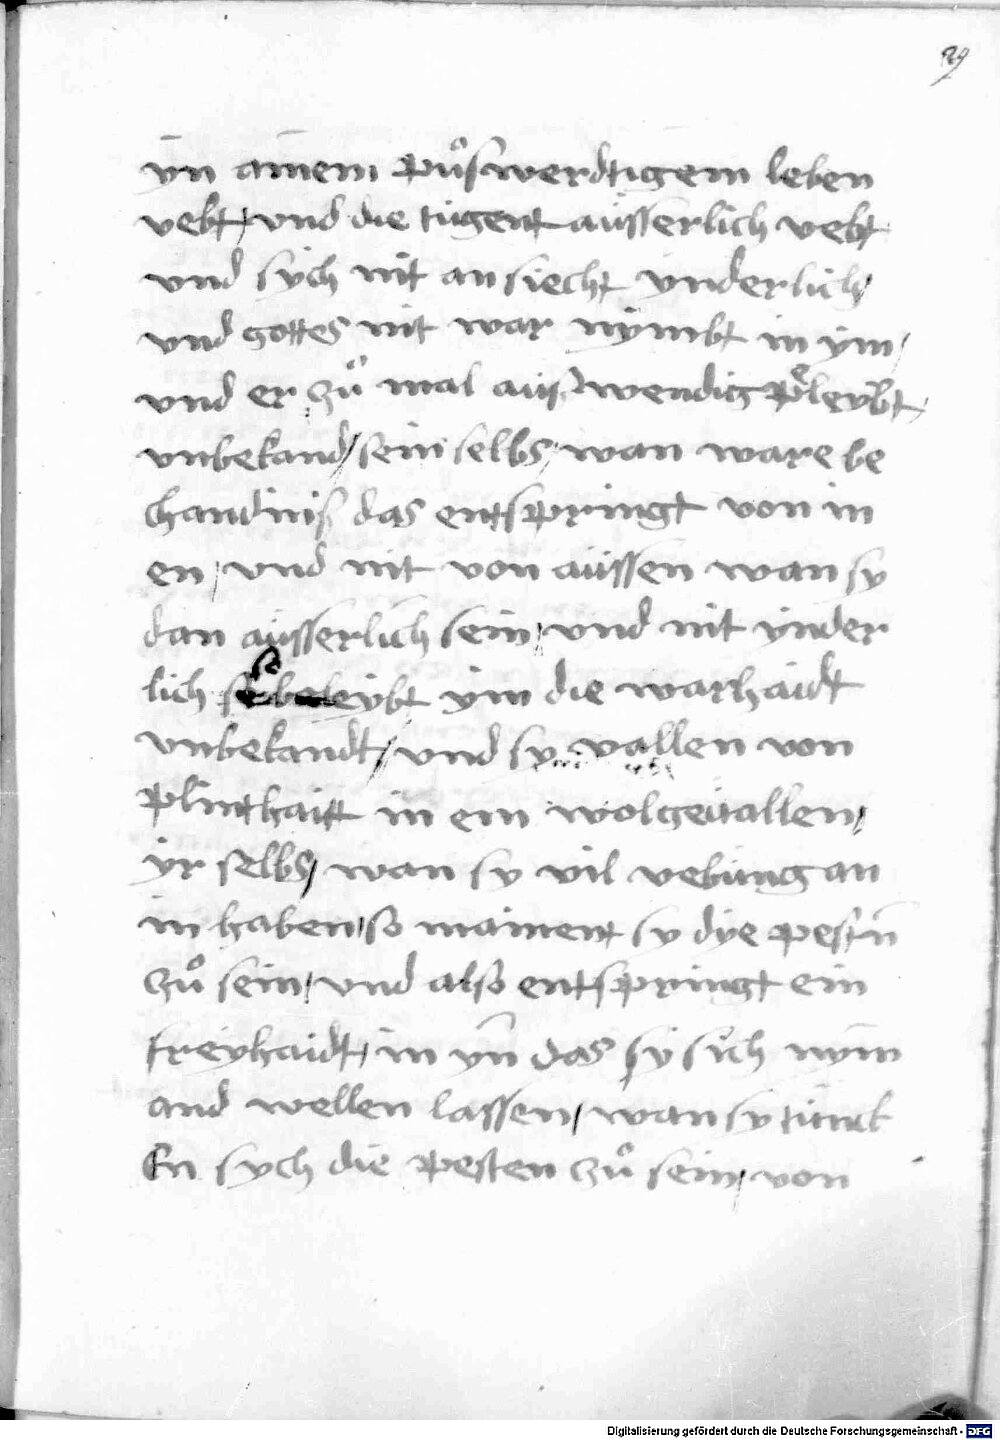 29
yn ainem pu̇̊swerdtigem leben
vebt / vnd die tugent aüsserlich vebt
vnd sych nit an siecht ynderlich /
vnd gottes nit war nymbt in ym /
vnd er zů mal aüs wendig peleybt /
vnbekand / sein selbs / wan ware be
handnis das entspringt von in
en / vnd nit von aüssen wan sy
dan aüsserlich sein / vnd nit ynder
lich so beleybt ym die warhaidt
vnbekandt / vnd sy vallen von
plinthaitt in ein wolgeuallen /
yr selbs / wan sy vil vebung an
in haben / so mainent sy dye pestn̄
zů sein / vnd also entspringt ein
freyhaidt / in yn̄ das sy sich nym
and wellen lassen / wan sy tünck
En sych die pesten zů sein / von
Digitalisierung gefördert durch die Deutsche Forschungsgemeinschaft - DFG